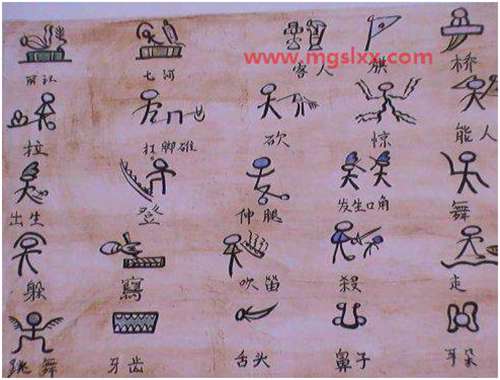 www.mgslxx.com
七河 家人 旗 桥
拉 打脚碓 砍 惊 能人
出生 登 伸腿 发生口角 舞
躲 寫 吹笛 殺 走
跳舞 牙齿 舌头 鼻子 耳朵